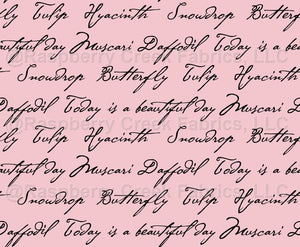 fly Tulip Hyacinth Snowdrop Butterf
autiful day Muscari Daffodil Today is a be
t Snowdrop Butterfly Tulip Hyacinth
Daffodil Today is a beautiful day Muscari
fly Tulip Hyacinth Snowdrop Butterf
@Raspberry Creek Fabrics, LLC
autiful day Muscari Daffodil Today is a be
@Raspberry Creek Fabrics, LLC
Snowdrop Butterfly Tulip Hyacinth
Daffodil Today is a beautiful day Muscari